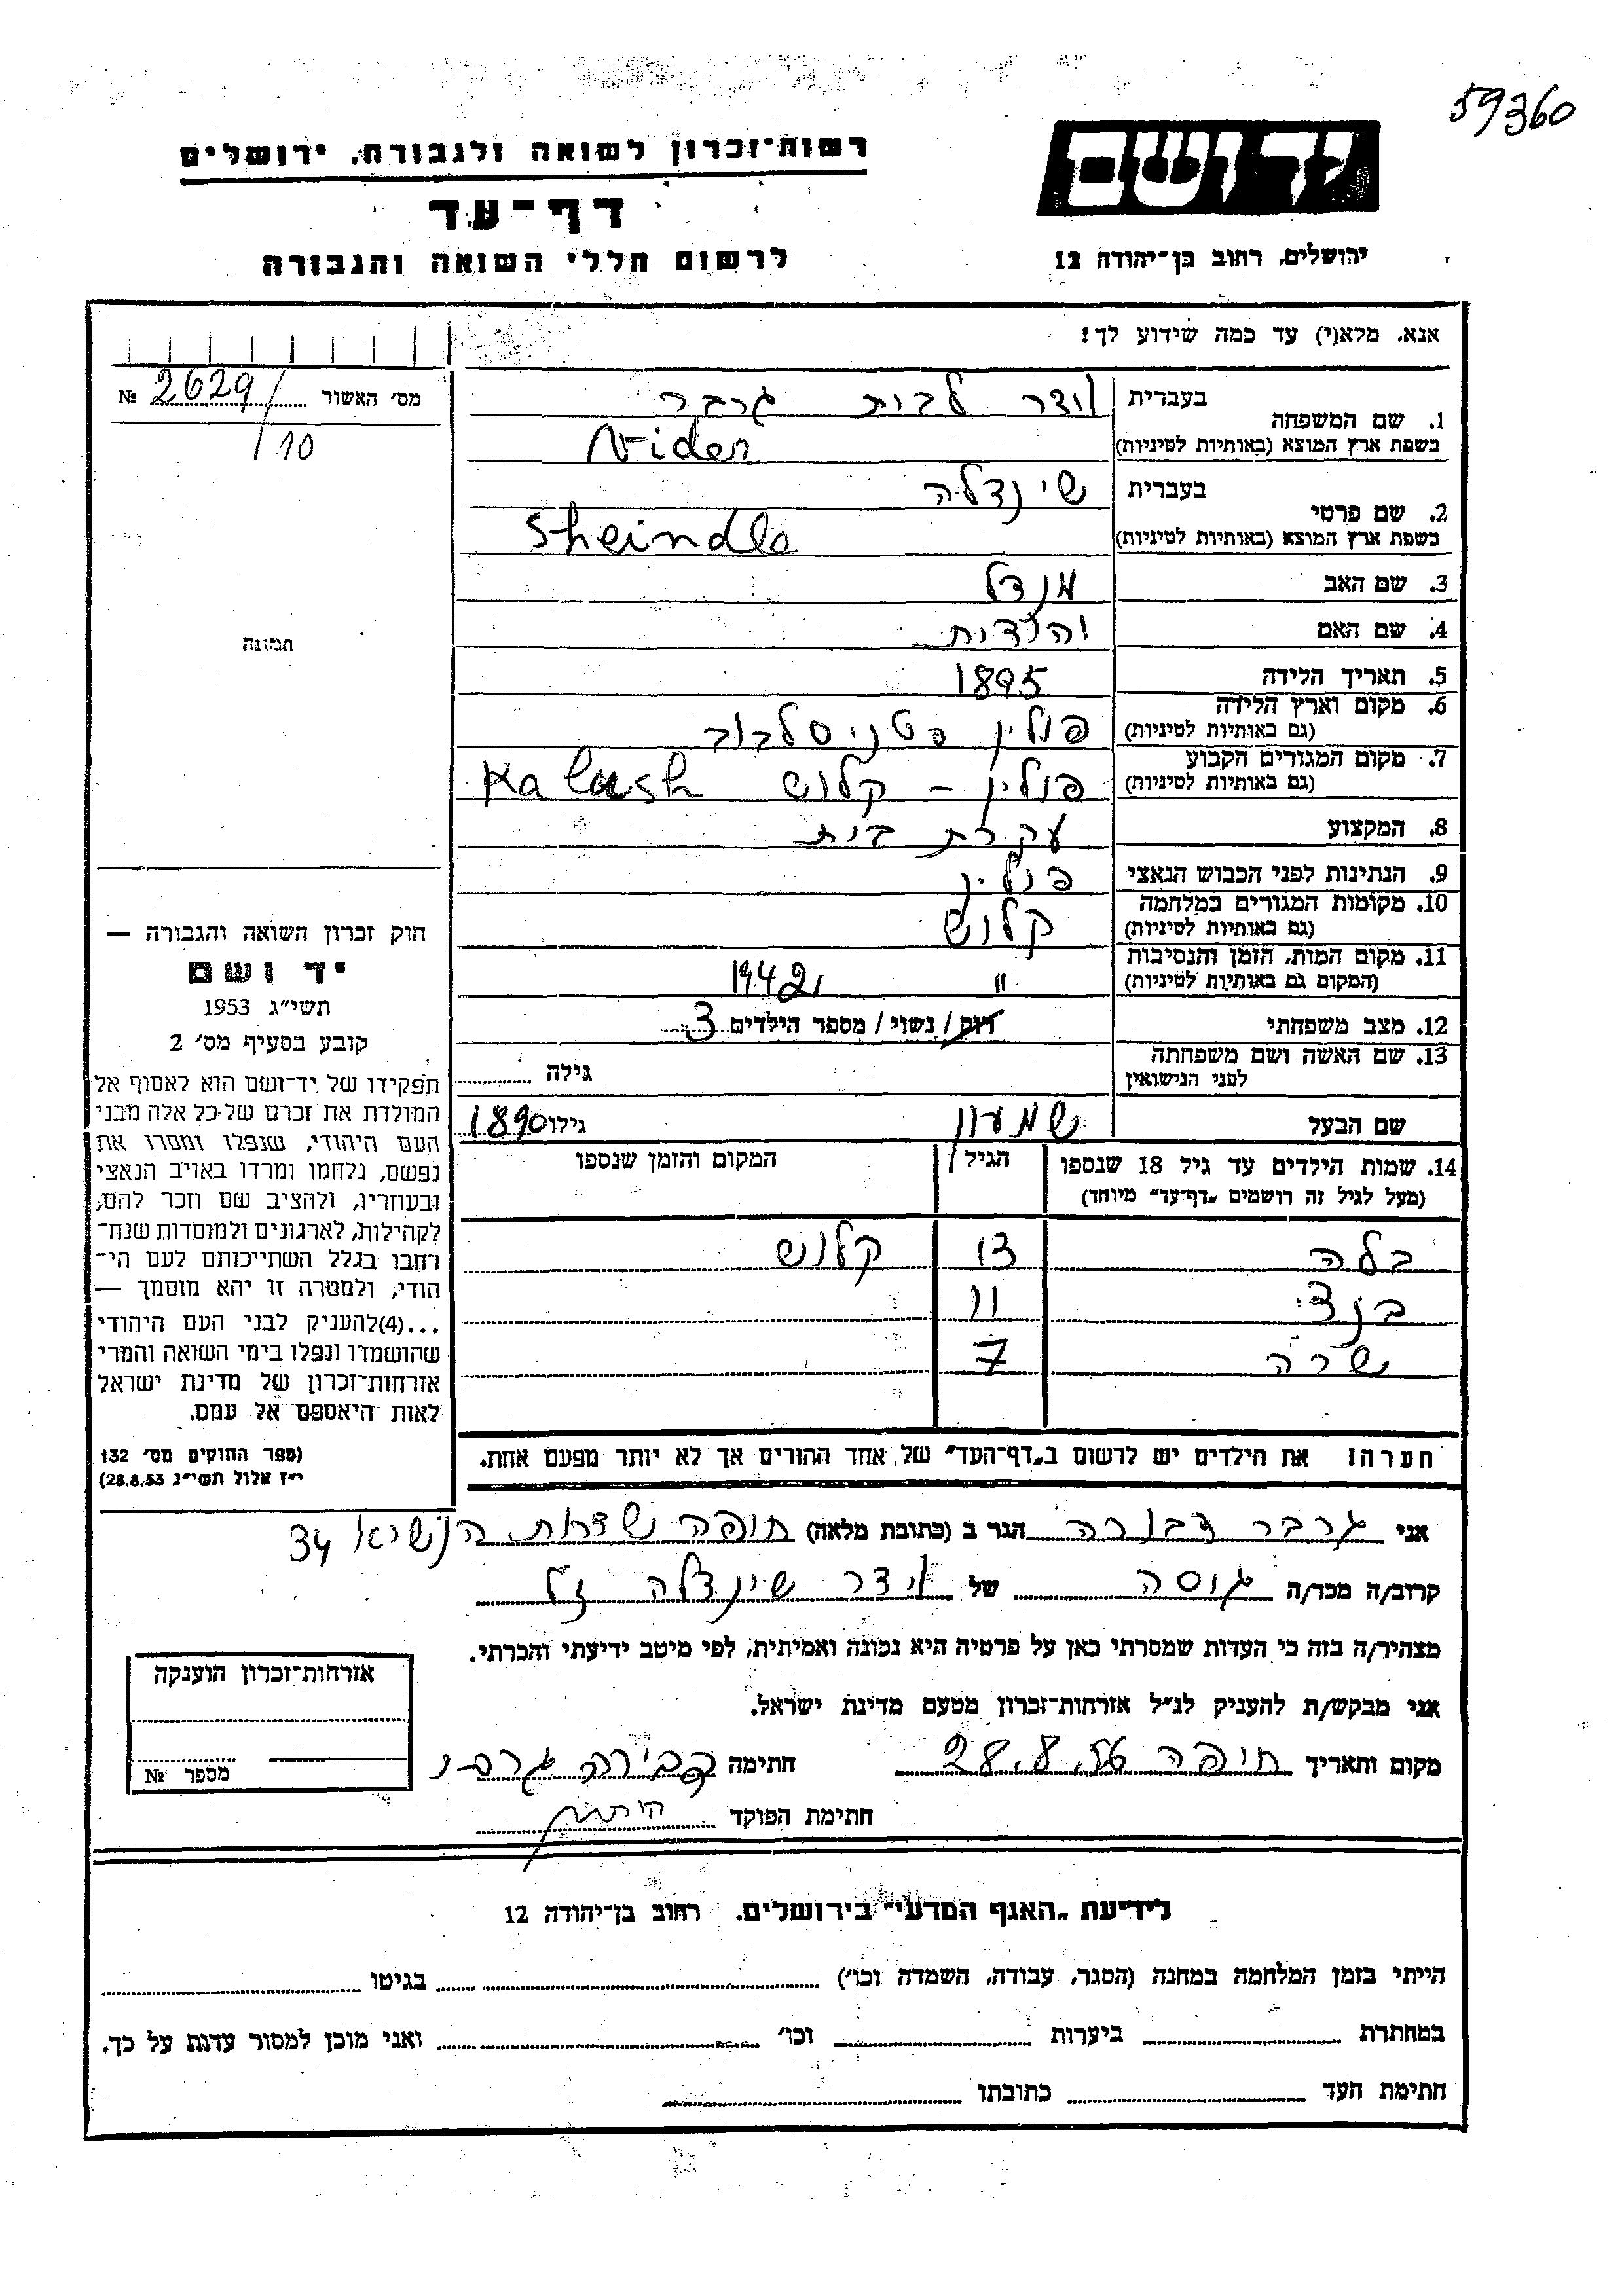 59360
יד ושם
רשות־זכרון לשואה ולגבורה, ירושלים
דף־עד
לרשום חללי השואה והגבורה
ירושלים, רחוב בן־יהודה 12
אנא, מלא(י) עד כמה שידוע לך!
מס׳ האשור 2629/ №
/10
1. שם המשפחה
בעברית לבית גרבר
בשפת ארץ המוצא (באותיות לטיניות) Nider
2. שם פרטי
בעברית שינדלה
בשפת ארץ המוצא (באותיות לטיניות) Sheindle
3. שם האב מנדל
4. שם האם
תמונה
5. תאריך הלידה 1895
6. מקום וארץ הלידה
(גם באותיות לטיניות) פולין סטניסלבוב
7. מקום המגורים הקבוע
(גם באותיות לטיניות) פולין – קלוש Kalush
8. המקצוע עקרת בית
9. הנתינות לפני הכבוש הנאצי פולין
10. מקומות המגורים במלחמה
(גם באותיות לטיניות) קלוש
11. מקום המות, הזמן והנסיבות
(המקום גם באותיות לטיניות) " 1942
12. מצב משפחתי רווק / נשוי / מספר הילדים 3
13. שם האשה ושם משפחתה
לפני הנישואין גילה
שם הבעל שמעון גילו 1890
14. שמות הילדים עד גיל 18 שנספו הגיל המקום והזמן שנספו
(מעל לגיל זה רושמים „דף־עד" מיוחד)
בלה 13 קלוש
11
שרה 7
הערה! את הילדים יש לרשום ב„דף־העד" של אחד ההורים אך לא יותר מפעם אחת.
חוק זכרון השואה והגבורה —
יד ושם
תשי״ג 1953
קובע בסעיף מס׳ 2
תפקידו של יד־ושם הוא לאסוף אל
המולדת את זכרם של כל אלה מבני
העם היהודי, שנפלו ומסרו את
נפשם, נלחמו ומרדו באויב הנאצי
ובעוזריו, ולהציב שם וזכר להם,
לקהילות, לארגונים ולמוסדות שנח־
רבו בגלל השתייכותם לעם הי־
הודי, ולמטרה זו יהא מוסמך —
...(4) להעניק לבני העם היהודי
שהושמדו ונפלו בימי השואה והמרי
אזרחות־זכרון של מדינת ישראל
לאות היאספם אל עמם.
(ספר החוקים מס׳ 132
י״ז אלול תשי״ג 28.8.53)
אני גרבר דבורה הגר ב (כתובת מלאה) חיפה שדרות הנשיא 34
קרוב/ה מכר/ה גיסה של שינדלה ז"ל
מצהיר/ה בזה כי העדות שמסרתי כאן על פרטיה היא נכונה ואמיתית, לפי מיטב ידיעתי והכרתי.
אני מבקש/ת להעניק לנ״ל אזרחות־זכרון מטעם מדינת ישראל.
מקום ותאריך חיפה 28.8.56 חתימה
חתימת הפוקד
אזרחות־זכרון הוענקה
מספר №
לידיעת „האגף המדעי" בירושלים, רחוב בן־יהודה 12
הייתי בזמן המלחמה במחנה (הסגר, עבודה, השמדה וכו׳) בגיטו
במחתרת ביערות וכו׳ ואני מוכן למסור עדות על כך.
חתימת העד כתובתו